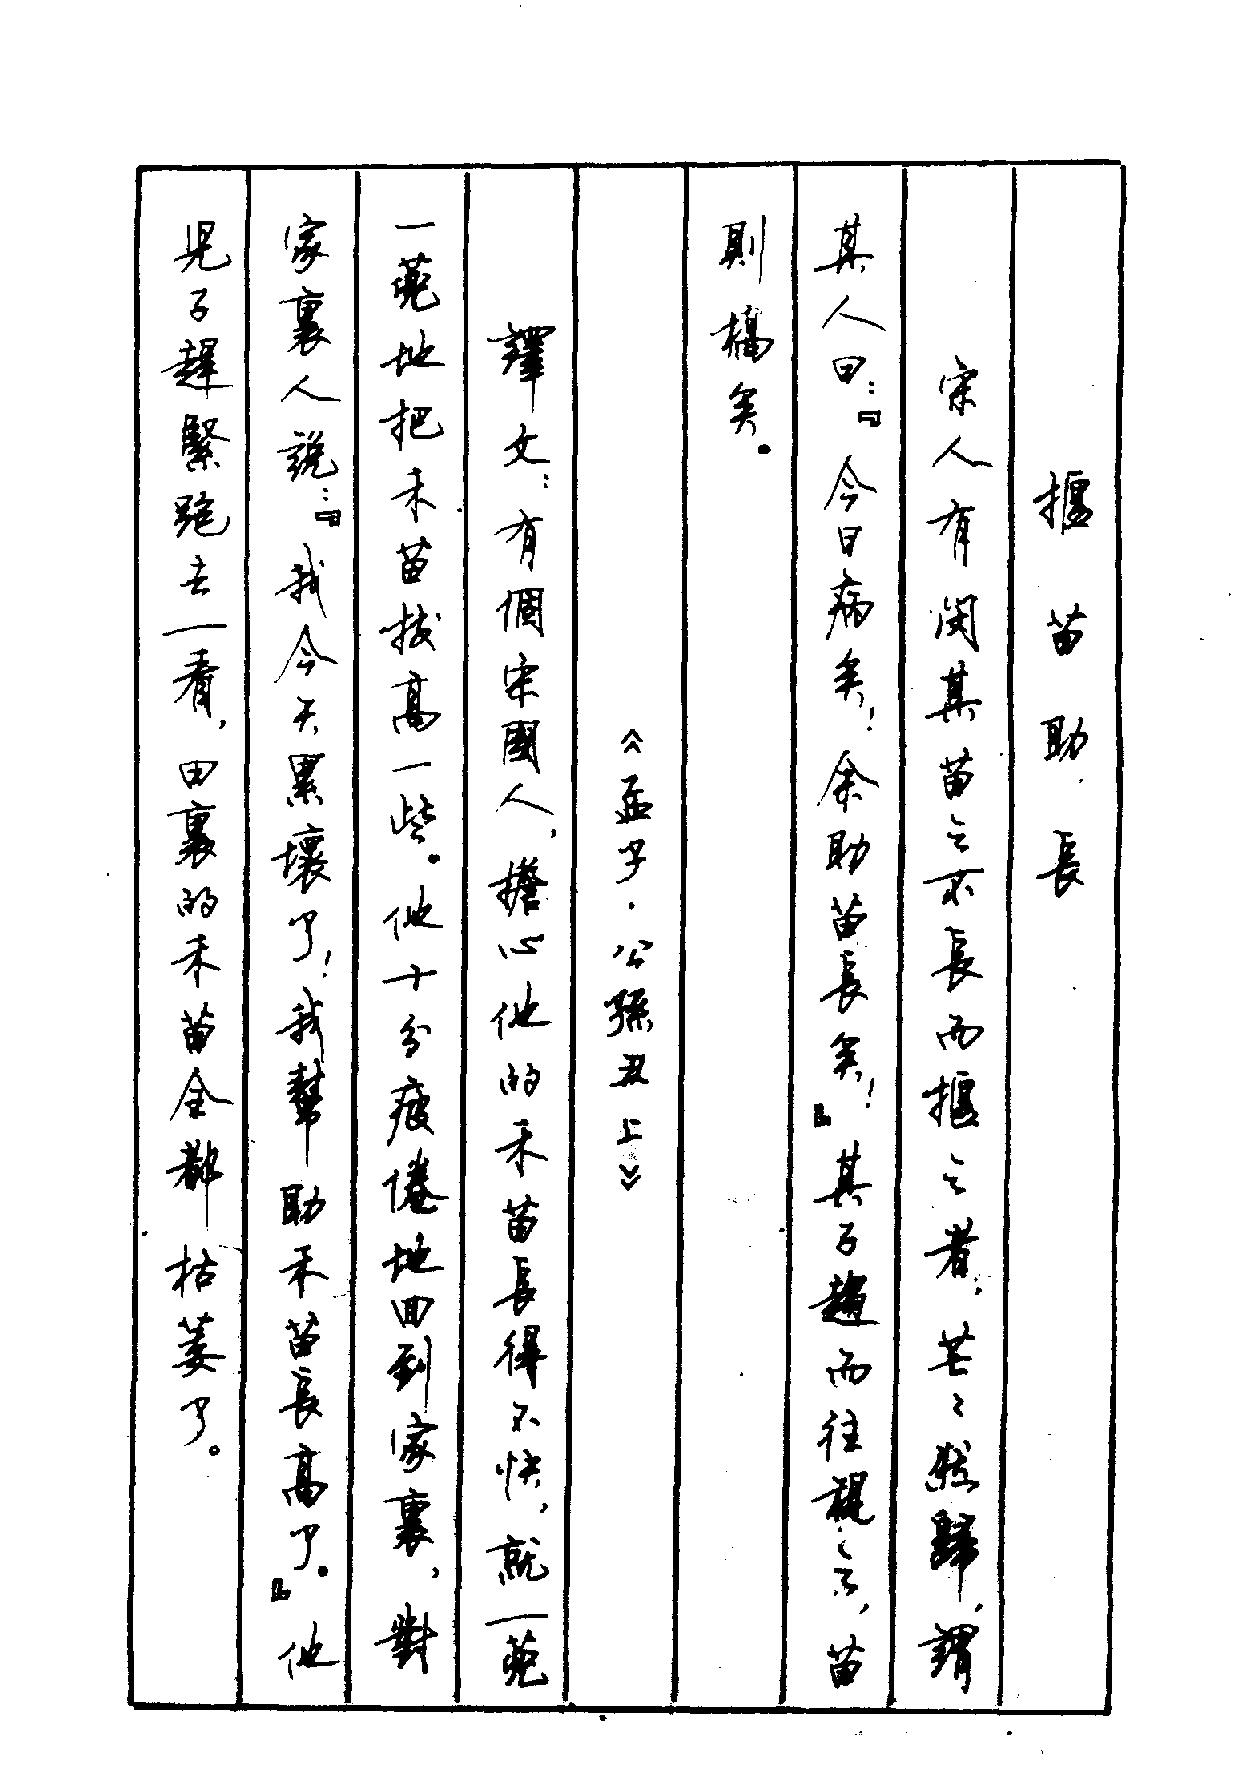 揠苗助長
宋人有閔其苗之不長而揠之者，芒々然歸，謂
其人曰：『今日病矣！余助苗長矣！』其子趨而往視之，苗
則槁矣。
《孟子·公孫丑上》
譯文：有個宋國人，擔心他的禾苗長得不快，就一蔸
一蔸地把禾苗拔高一些。他十分疲倦地回到家裏，對
家裏人說：『我今天累壞了！我幫助禾苗長高了。』他
兒子趕緊跑去一看，田裏的禾苗全都枯萎了。